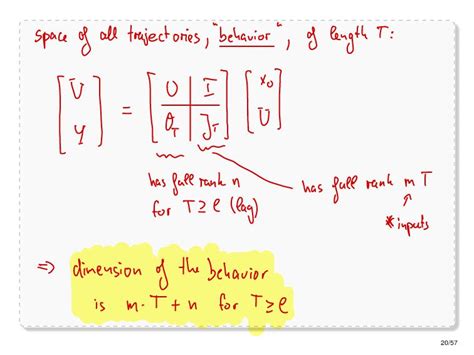 space of all trajectories, "behavior", of length T:
[U Y] = [0 I 𝒪_T 𝒥_T] [x_0 U]
has full rank n
for T ≥ ℓ (lag)
has full rank m T
#inputs
⇒ dimension of the behavior
is m·T + n for T ≥ ℓ
20/57